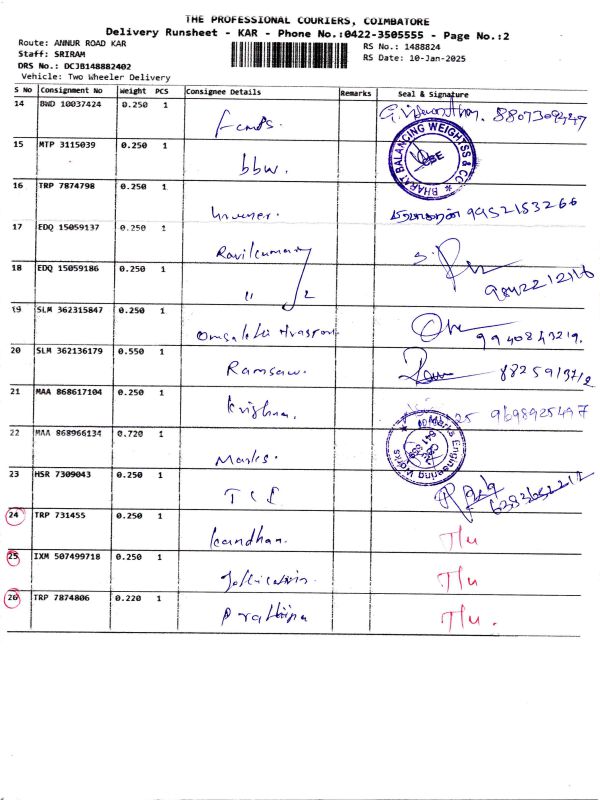 THE PROFESSIONAL COURIERS, COIMBATORE
Delivery Runsheet - KAR - Phone No.:0422-3505555 - Page No.:2
Route: ANNUR ROAD KAR
RS No.: 1488824
Staff: SRIRAM
RS Date: 10-Jan-2025
DRS No.: DCJB148882402
Vehicle: Two Wheeler Delivery
S No Consignment No Weight PCS Consignee Details Remarks Seal & Signature
14 BWD 10037424 0.250 1
8807309447
15 MTP 3115039 0.250 1 bbw.
BHARAT BALANCING WEIGHTSS & CO
16 TRP 7874798 0.250 1
9952153266
17 EDQ 15059137 0.250 1 Ravikumar
18 EDQ 15059186 0.250 1 "
9842212116
19 SLM 362315847 0.250 1
9940843219.
20 SLM 362136179 0.550 1 Ramsaw.
8825913712
21 MAA 868617104 0.250 1 Krishna.
9698925497
22 MAA 868966134 0.720 1 Marks.
Marks Engineering Works
23 HSR 7309043 0.250 1 TCI
24 TRP 731455 0.250 1 kandhan.
25 IXM 507499718 0.250 1
26 TRP 7874806 0.220 1